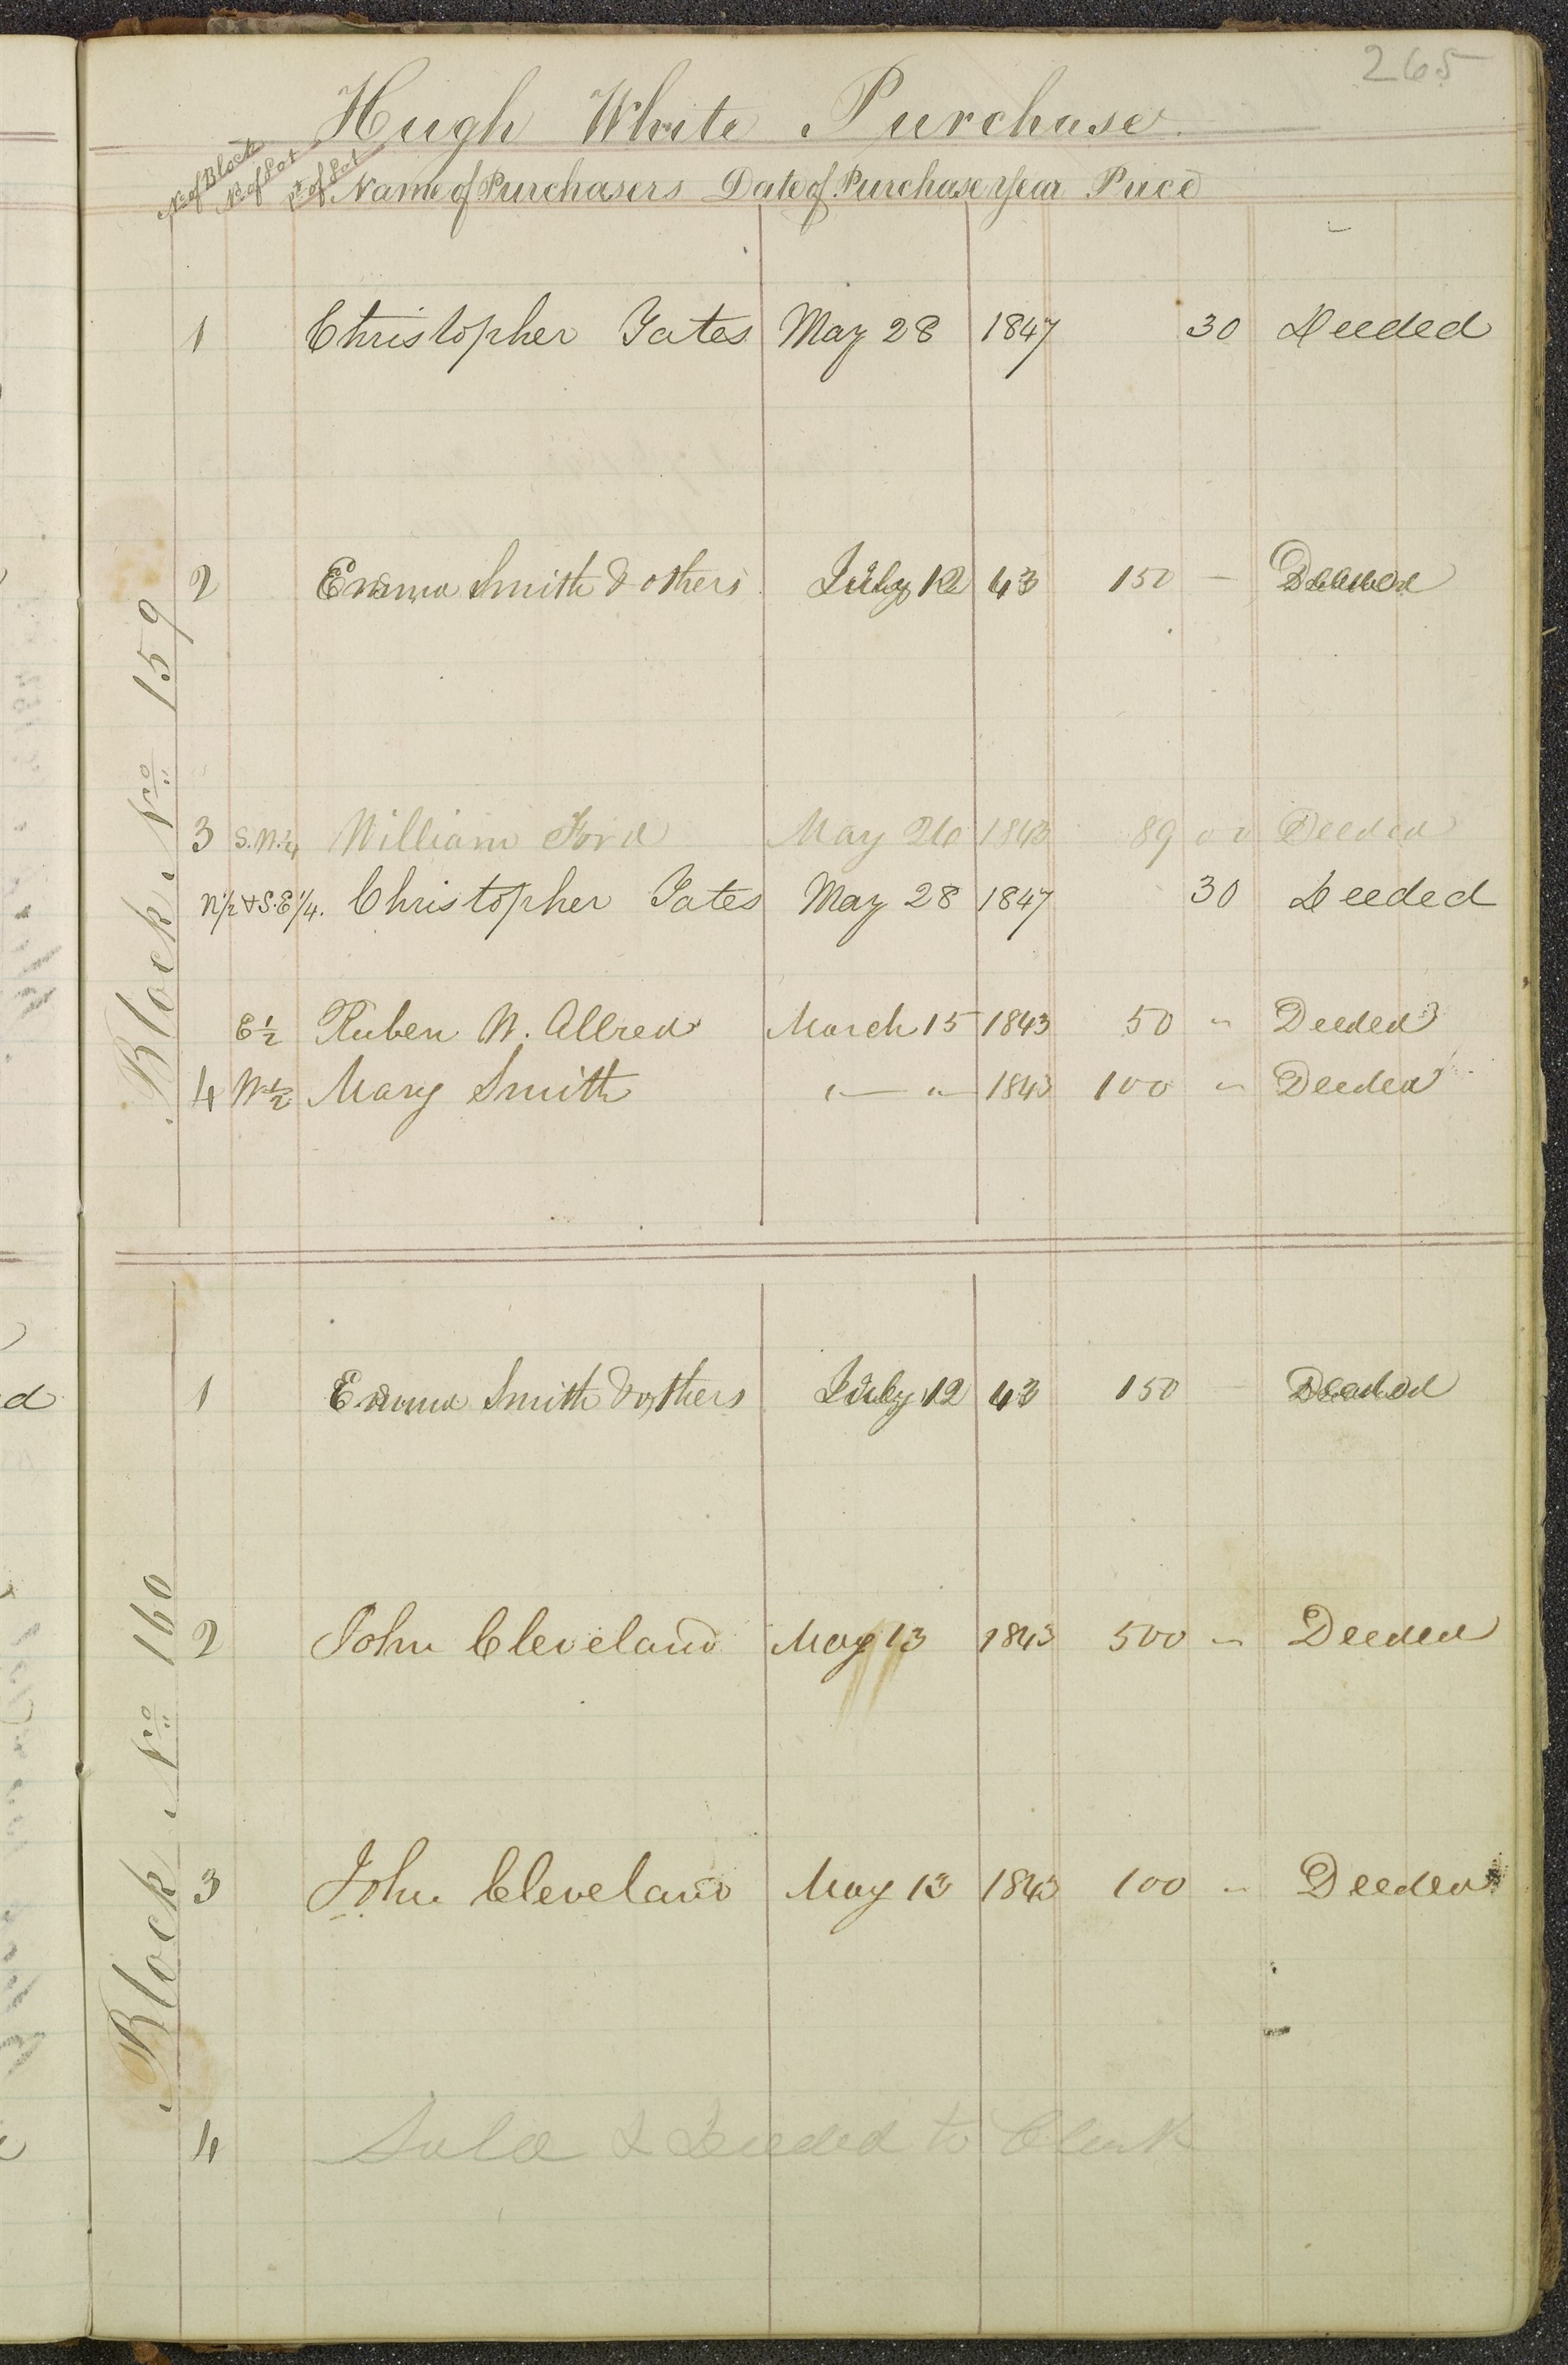 265
Hugh White Purchase
No of Block No of Lot Pt of Lot Name of Purchasers Date of Purchase Year Price
Block No 159
1 Christopher Yates May 28 1847 30 Deeded
2 Emma Smith & others July 12 43 150 - Deeded
3 S.W.1/4 William Ford May 26 1843 89 00 Deeded
N1/2 & S.E1/4. Christopher Yates May 28 1847 30 Deeded
E 1/2 Ruben W. Allred March 15 1843 50 " Deeded
4 W 1/2 Mary Smith "—"— 1843 100 " Deeded
Block No 160
1 Emma Smith & others July 12 43 150 Deeded
2 John Cleveland May 13 1843 500 " Deeded
3 John Cleveland May 13 1843 100 " Deeded
4 Sold & Deeded to Clark